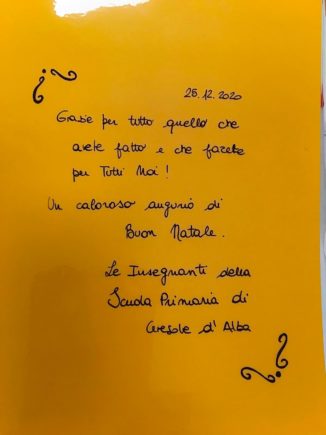 25.12.2020
Grazie per tutto quello che
avete fatto e che farete
per Tutti Noi!
Un caloroso augurio di
Buon Natale.
Le Insegnanti della
Scuola Primaria di
Ceresole d'Alba